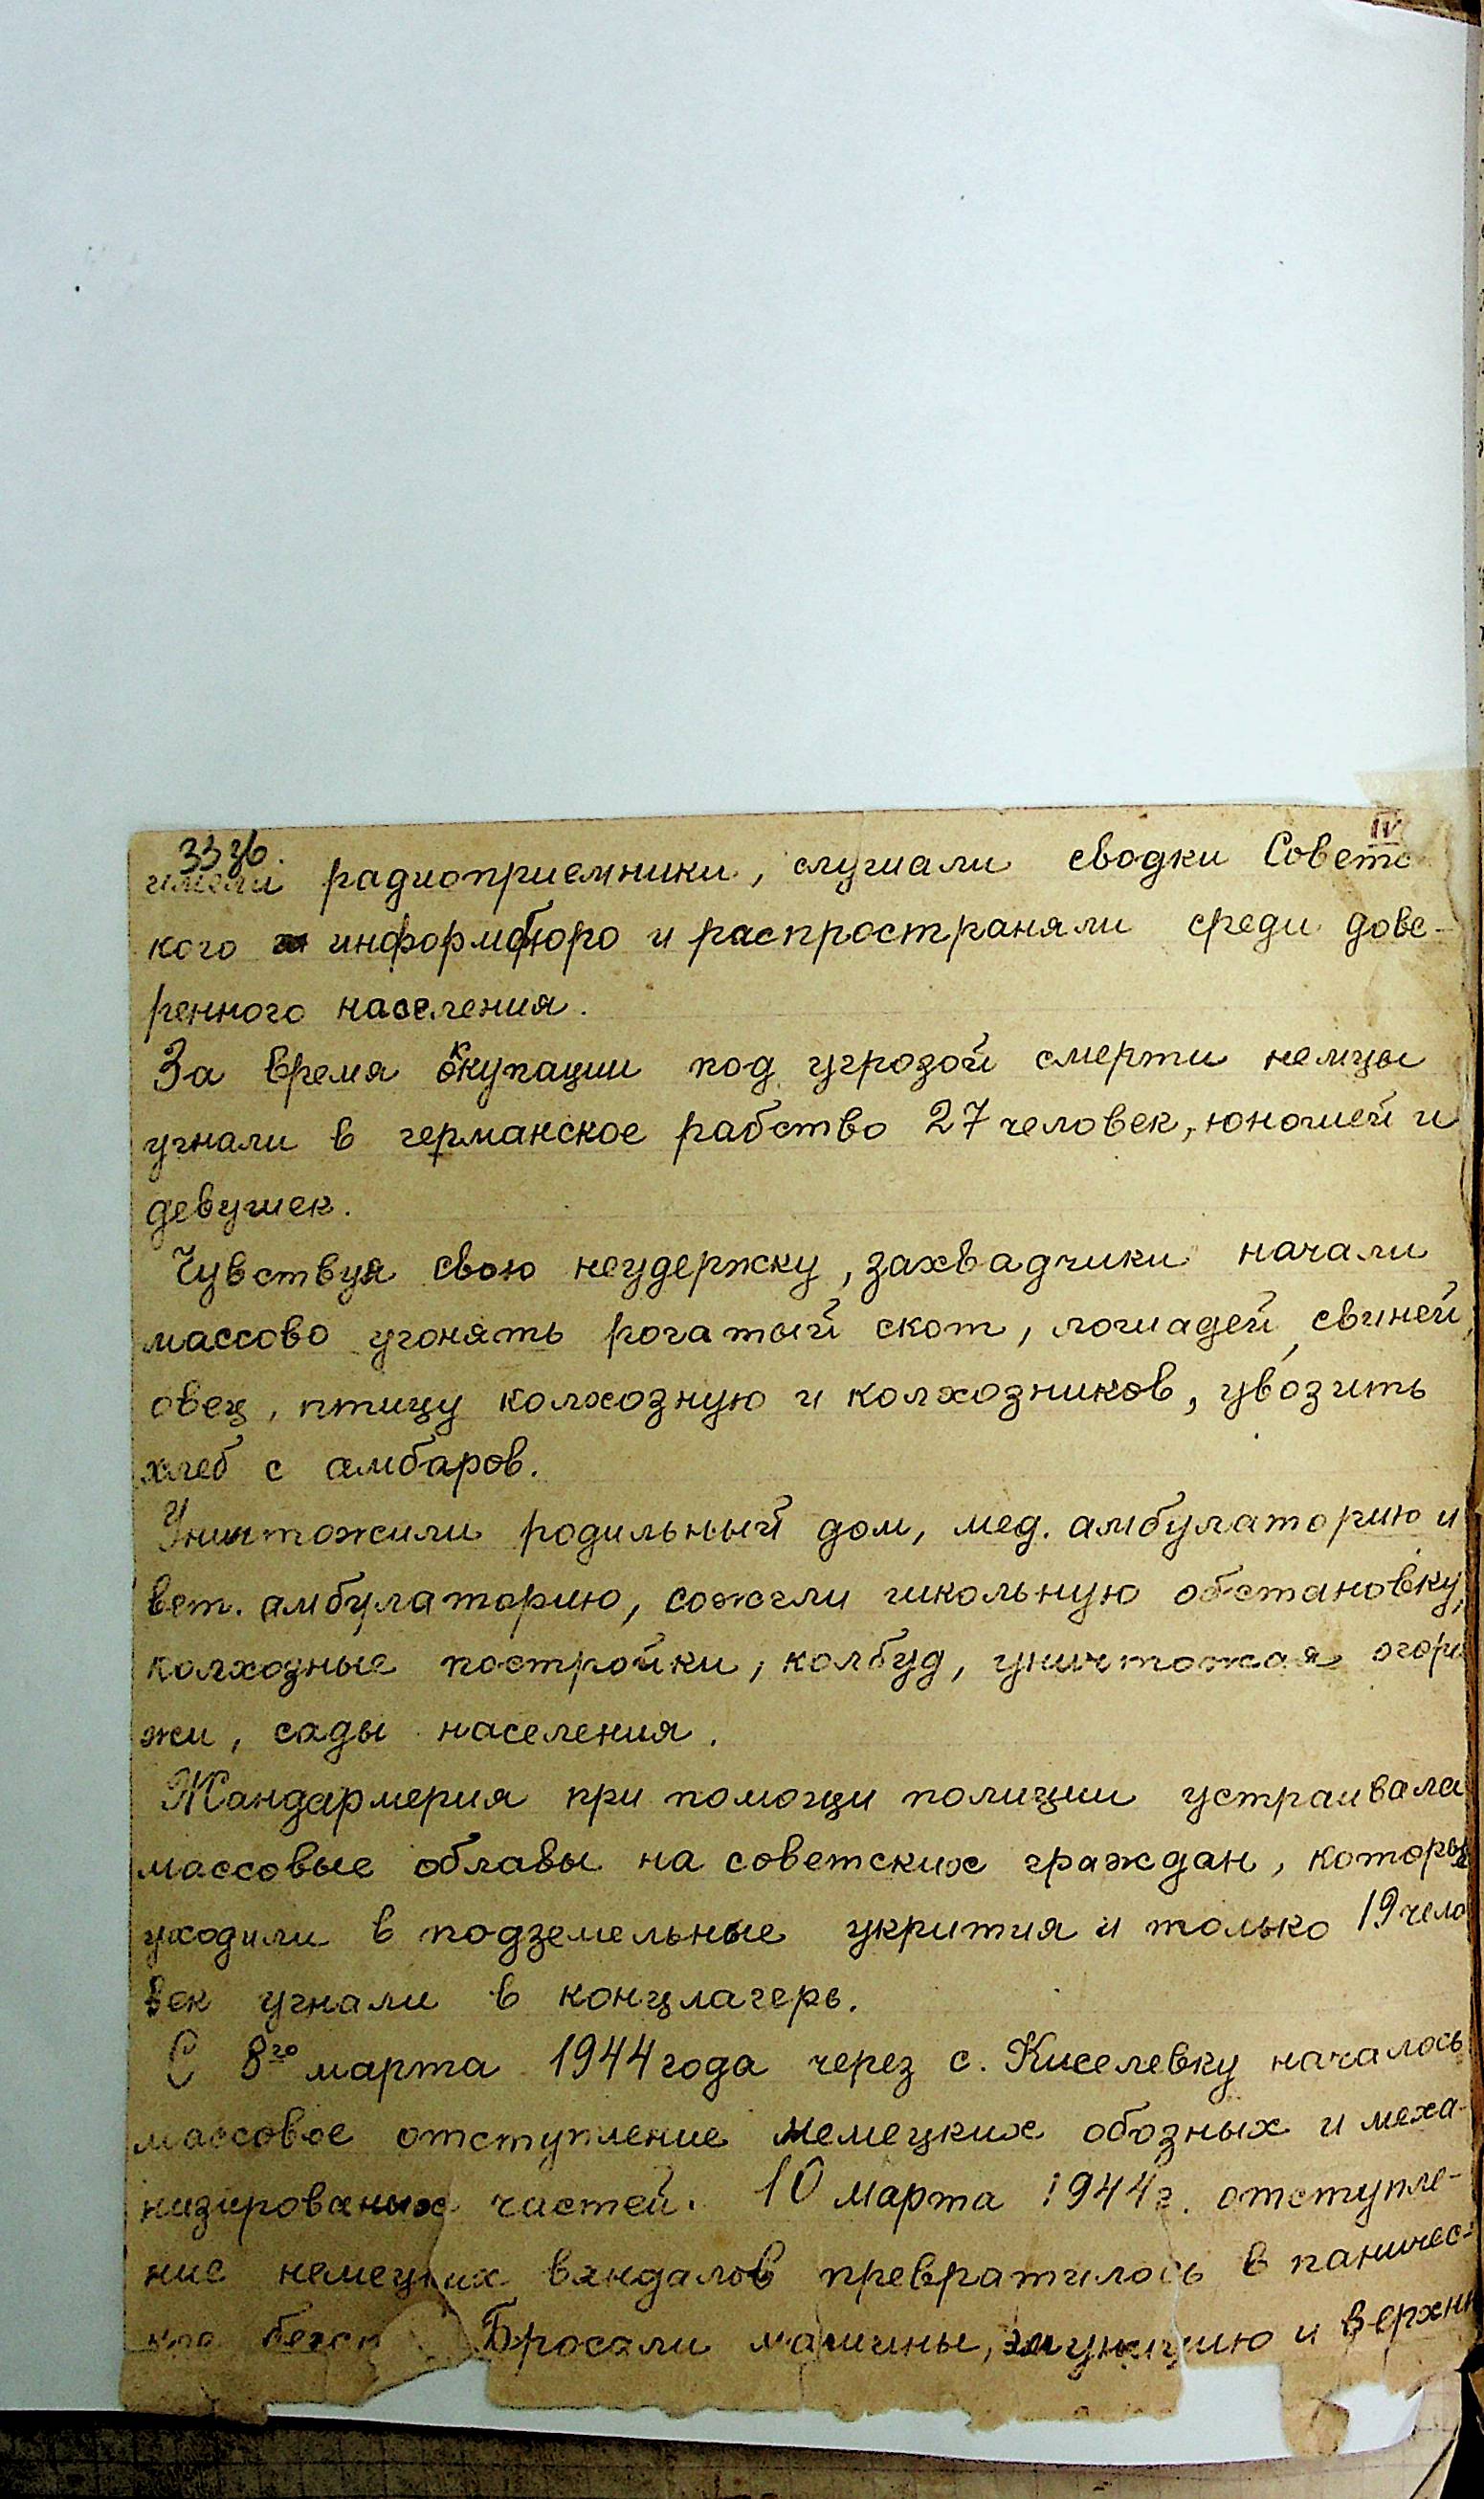 33 зв.
IV
имели радиоприемники, слушали сводки Советс
кого информбюро и распространяли среди дове-
ренного населения.
За время окупации под угрозой смерти немцы
угнали в германское рабство 27 человек, юношей и
девушек.
Чувствуя свою неудержку, захвадчики начали
массово угонять рогатый скот, лошадей, свиней,
овец, птицу колхозную и колхозников, увозить
хлеб с амбаров.
Уничтожили родильный дом, мед. амбулаторию и
вет. амбулаторию, сожгли школьную обстановку,
колхозные постройки, колбуд, уничтожая огоро
жи, сады населения.
Жандармерия при помощи полиции устраивала
массовые облавы на советских граждан, которые
уходили в подземельные укрития и только 19 чело
век угнали в концлагерь.
С 8го марта 1944 года через с. Киселевку началось
массовое отступление немецких обозных и меха-
низированых частей. 10 марта 1944 г. отступле-
ние немецких вандалов превратилось в паничес-
кое Бросали машины, и верхн